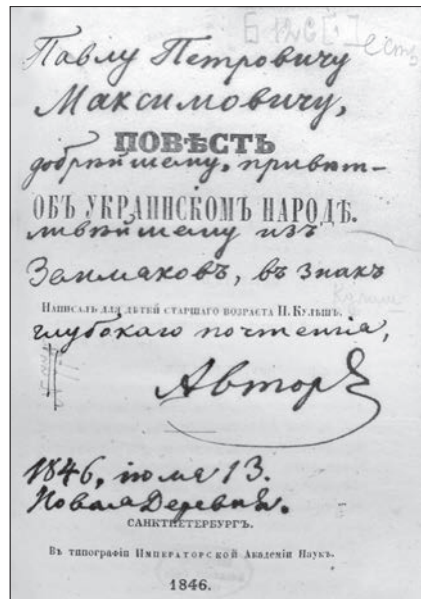 Б 126 [1] есть
Павлу Петровичу
Максимовичу,
ПОВѢСТЬ
добрѣйшему, привѣт-
ОБЪ УКРАИНСКОМЪ НАРОДѢ.
ливѣйшему изъ
Земляковъ, въ знакъ
Написалъ для дѣтей старшаго возраста П. Кулѣшъ.
глубокаго почтенія,
Авторъ
1846, іюля 13.
Новая Деревня.
САНКТПЕТЕРБУРГЪ.
Въ типографіи Императорской Академіи Наукъ.
1846.